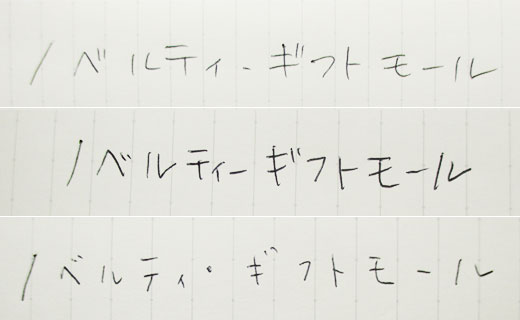 ノベルティ・ギフトモール
ノベルティーギフトモール
ノベルティ・ギフトモール